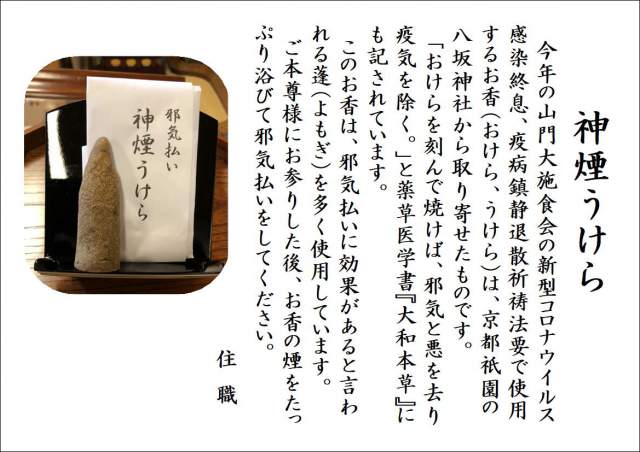 神煙うけら
今年の山門大施食会の新型コロナウイルス
感染終息、疫病鎮静退散祈祷法要で使用
するお香(おけら、うけら)は、京都祇園の
八坂神社から取り寄せたものです。
「おけらを刻んで焼けば、邪気と悪を去り
疫気を除く。」と薬草医学書『大和本草』に
も記されています。
このお香は、邪気払いに効果があると言わ
れる蓬(よもぎ)を多く使用しています。
ご本尊様にお参りした後、お香の煙をたっ
ぷり浴びて邪気払いをしてください。
住職
邪気払い
神煙うけら